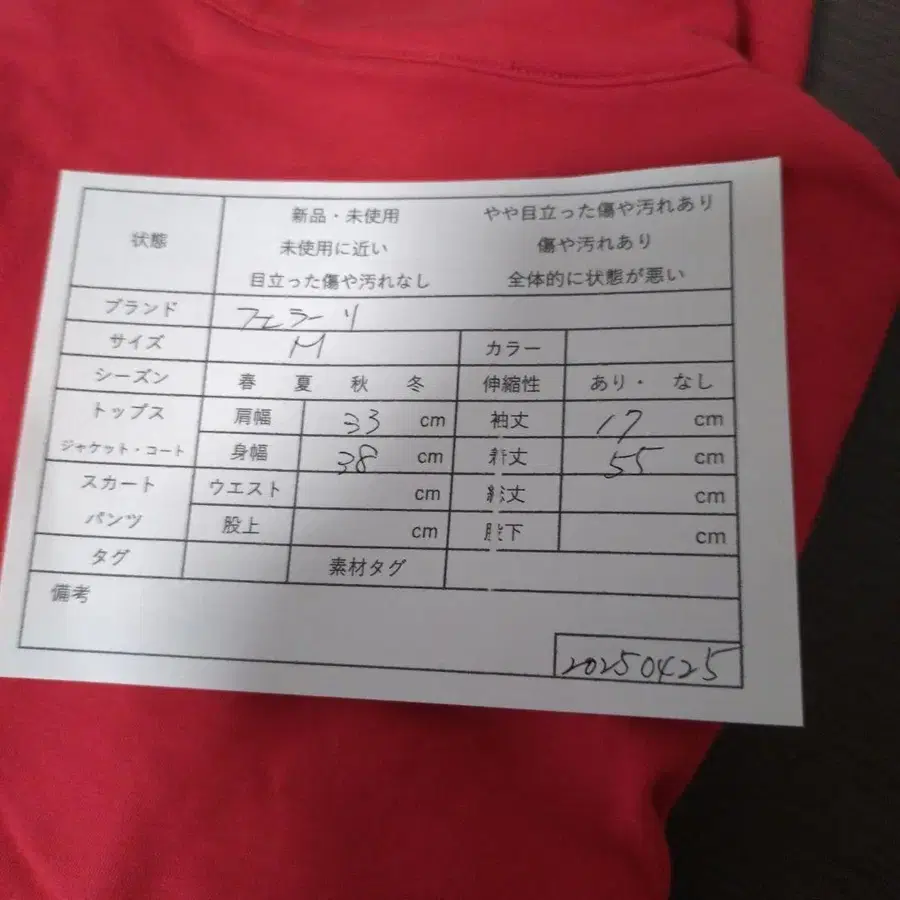 状態
新品・未使用 やや目立った傷や汚れあり
未使用に近い 傷や汚れあり
目立った傷や汚れなし 全体的に状態が悪い
ブランド フェラーリ
サイズ M カラー
シーズン 春 夏 秋 冬 伸縮性 あり・ なし
トップス 肩幅 33 cm 袖丈 17 cm
ジャケット・コート 身幅 38 cm 着丈 55 cm
スカート ウエスト cm 総丈 cm
パンツ 股上 cm 股下 cm
タグ 素材タグ
備考
20250425